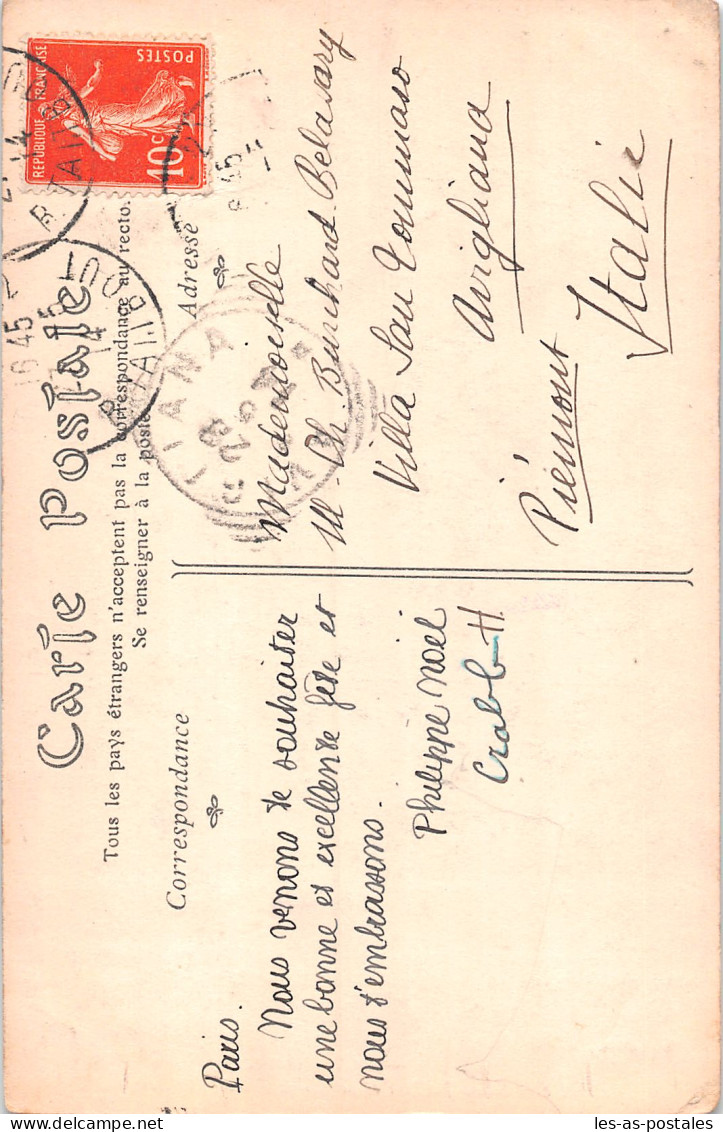 Carte Postale
Tous les pays étrangers n'acceptent pas la correspondance au recto.
Se renseigner à la poste
Correspondance
Adresse
RÉPUBLIQUE FRANÇAISE
POSTES
10 c
Paris.
Nous venons te souhaiter
une bonne et excellente fête et
nous t'embrassons.
Philippe Noël
Mademoiselle
M-Th. Burchard-Belavary
Villa San Tommaso
Avigliana
Piémont
Italie
les-as-postales